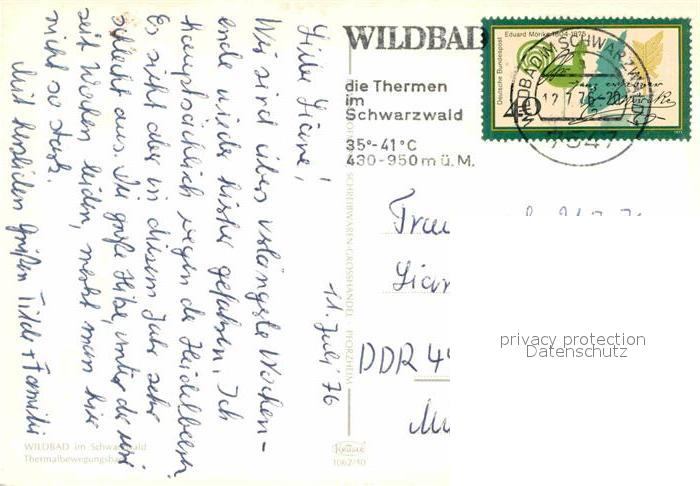 11. Juli 76
Liebe Liane!
Wir sind übers verlängerte Wochen-
ende wieder hierher gefahren. Ich
hauptsächlich wegen der Heidelbeeren.
Es sieht aber in diesem Jahr sehr
schlecht aus. Die große Hitze, unter der wir
seit Wochen leiden, merkt man hier
nicht so stark.
Mit herzlichen Grüßen Tilde + Familie
WILDBAD im Schwarzwald
Thermalbewegungsbad
SCHREIBWAREN-GROSSHANDEL PFORZHEIM
Krüger
1062/10
WILDBAD
die Thermen
im
Schwarzwald
35°-41°C
430-950 m ü. M.
Eduard Mörike 1804-1875
Deutsche Bundespost
40
WILDBAD IM SCHWARZWALD
12.7.76-20
7547
Frau
Lian
DDR 44
privacy protection
Datenschutz